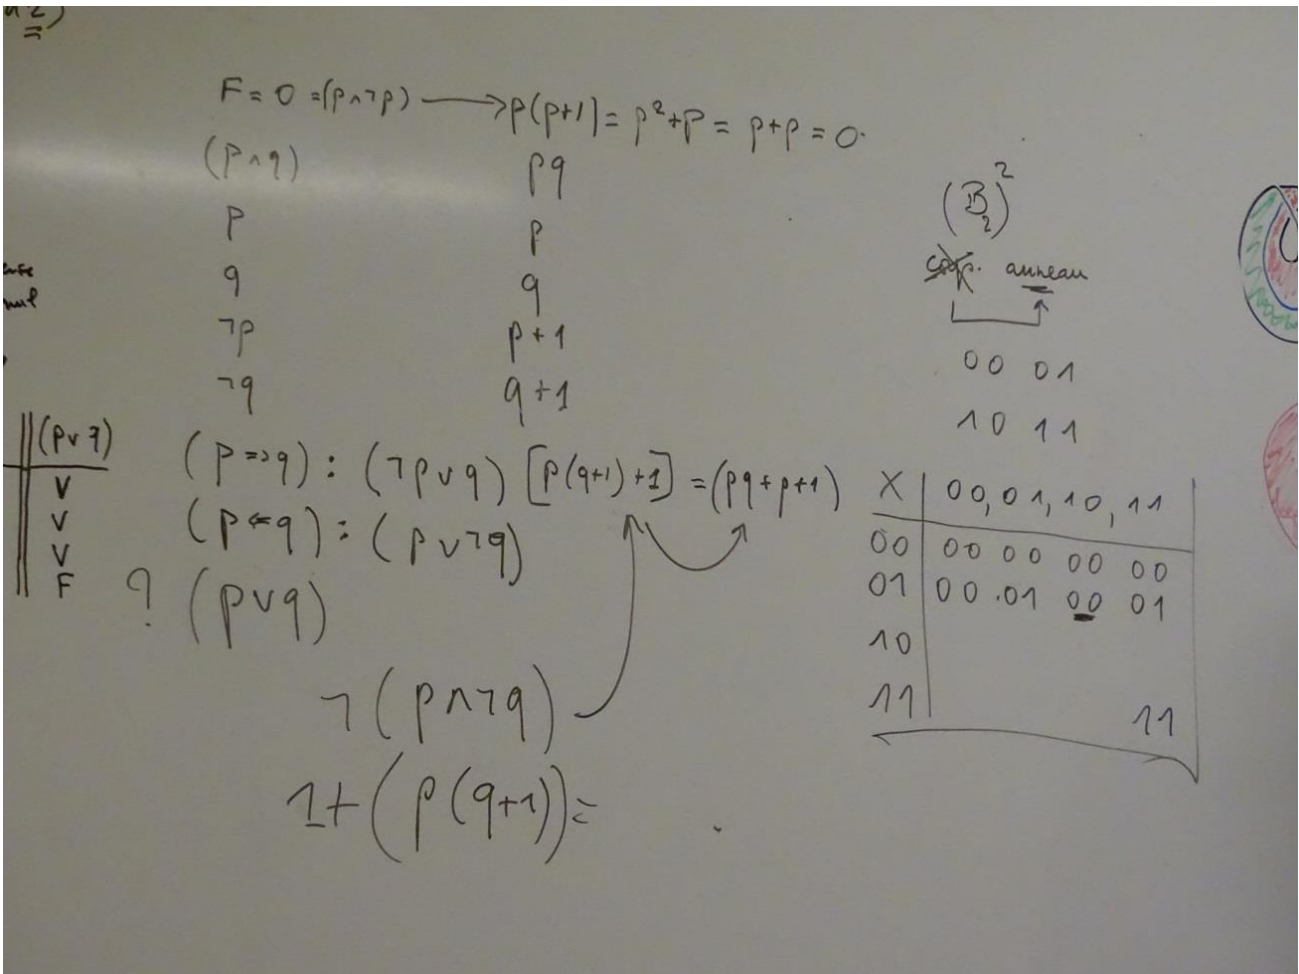 F = 0 = (p∧¬p) ⟶ p(p+1) = p²+p = p+p = 0.
(p∧q) pq
p p
q q
¬p p+1
¬q q+1
(p⇒q) : (¬p∨q) [p(q+1)+1] = (pq+p+1)
(p⇐q) : (p∨¬q)
? (p∨q)
¬(p∧¬q)
1+(p(q+1))=
(p∨q)
V
V
V
F
(B₂)²
anneau
00 01
10 11
X | 00, 01, 10, 11
00 | 00 00 00 00
01 | 00 .01 00 01
10
11 11